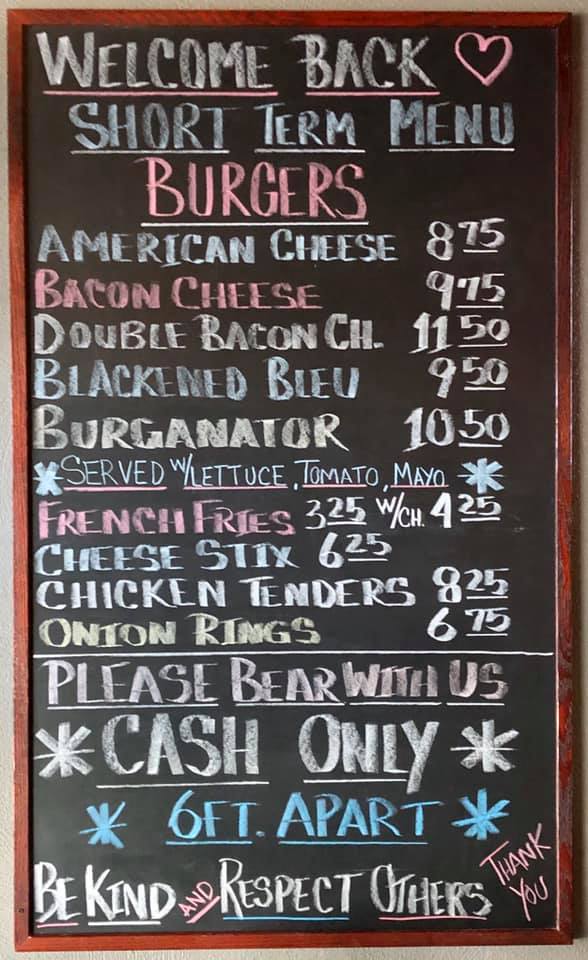 WELCOME BACK
SHORT TERM MENU
BURGERS
AMERICAN CHEESE 8 75
BACON CHEESE 9 75
DOUBLE BACON CH. 11 50
BLACKENED BLEU 9 50
BURGANATOR 10 50
*SERVED W/LETTUCE, TOMATO, MAYO *
FRENCH FRIES 3 25 W/CH. 4 25
CHEESE STIX 6 25
CHICKEN TENDERS 8 25
ONION RINGS 6 75
PLEASE BEAR WITH US
* CASH ONLY *
* 6FT. APART *
BE KIND AND RESPECT OTHERS
THANK
YOU